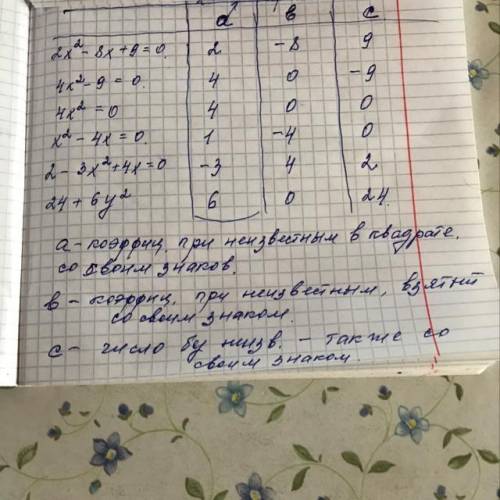 a в с
2x² - 8x + 9 = 0. 2 -8 9
4x² - 9 = 0. 4 0 -9
4x² = 0 4 0 0
x² - 4x = 0. 1 -4 0
2 - 3x² + 4x = 0 -3 4 2
24 + 6y² 6 0 24
а - коэффиц. при неизвестным в квадрате.
со своим знаков.
в - коэффиц. при неизвестным, взятый
со своим знаком
с - число бу низв. - также со
своим знаком.